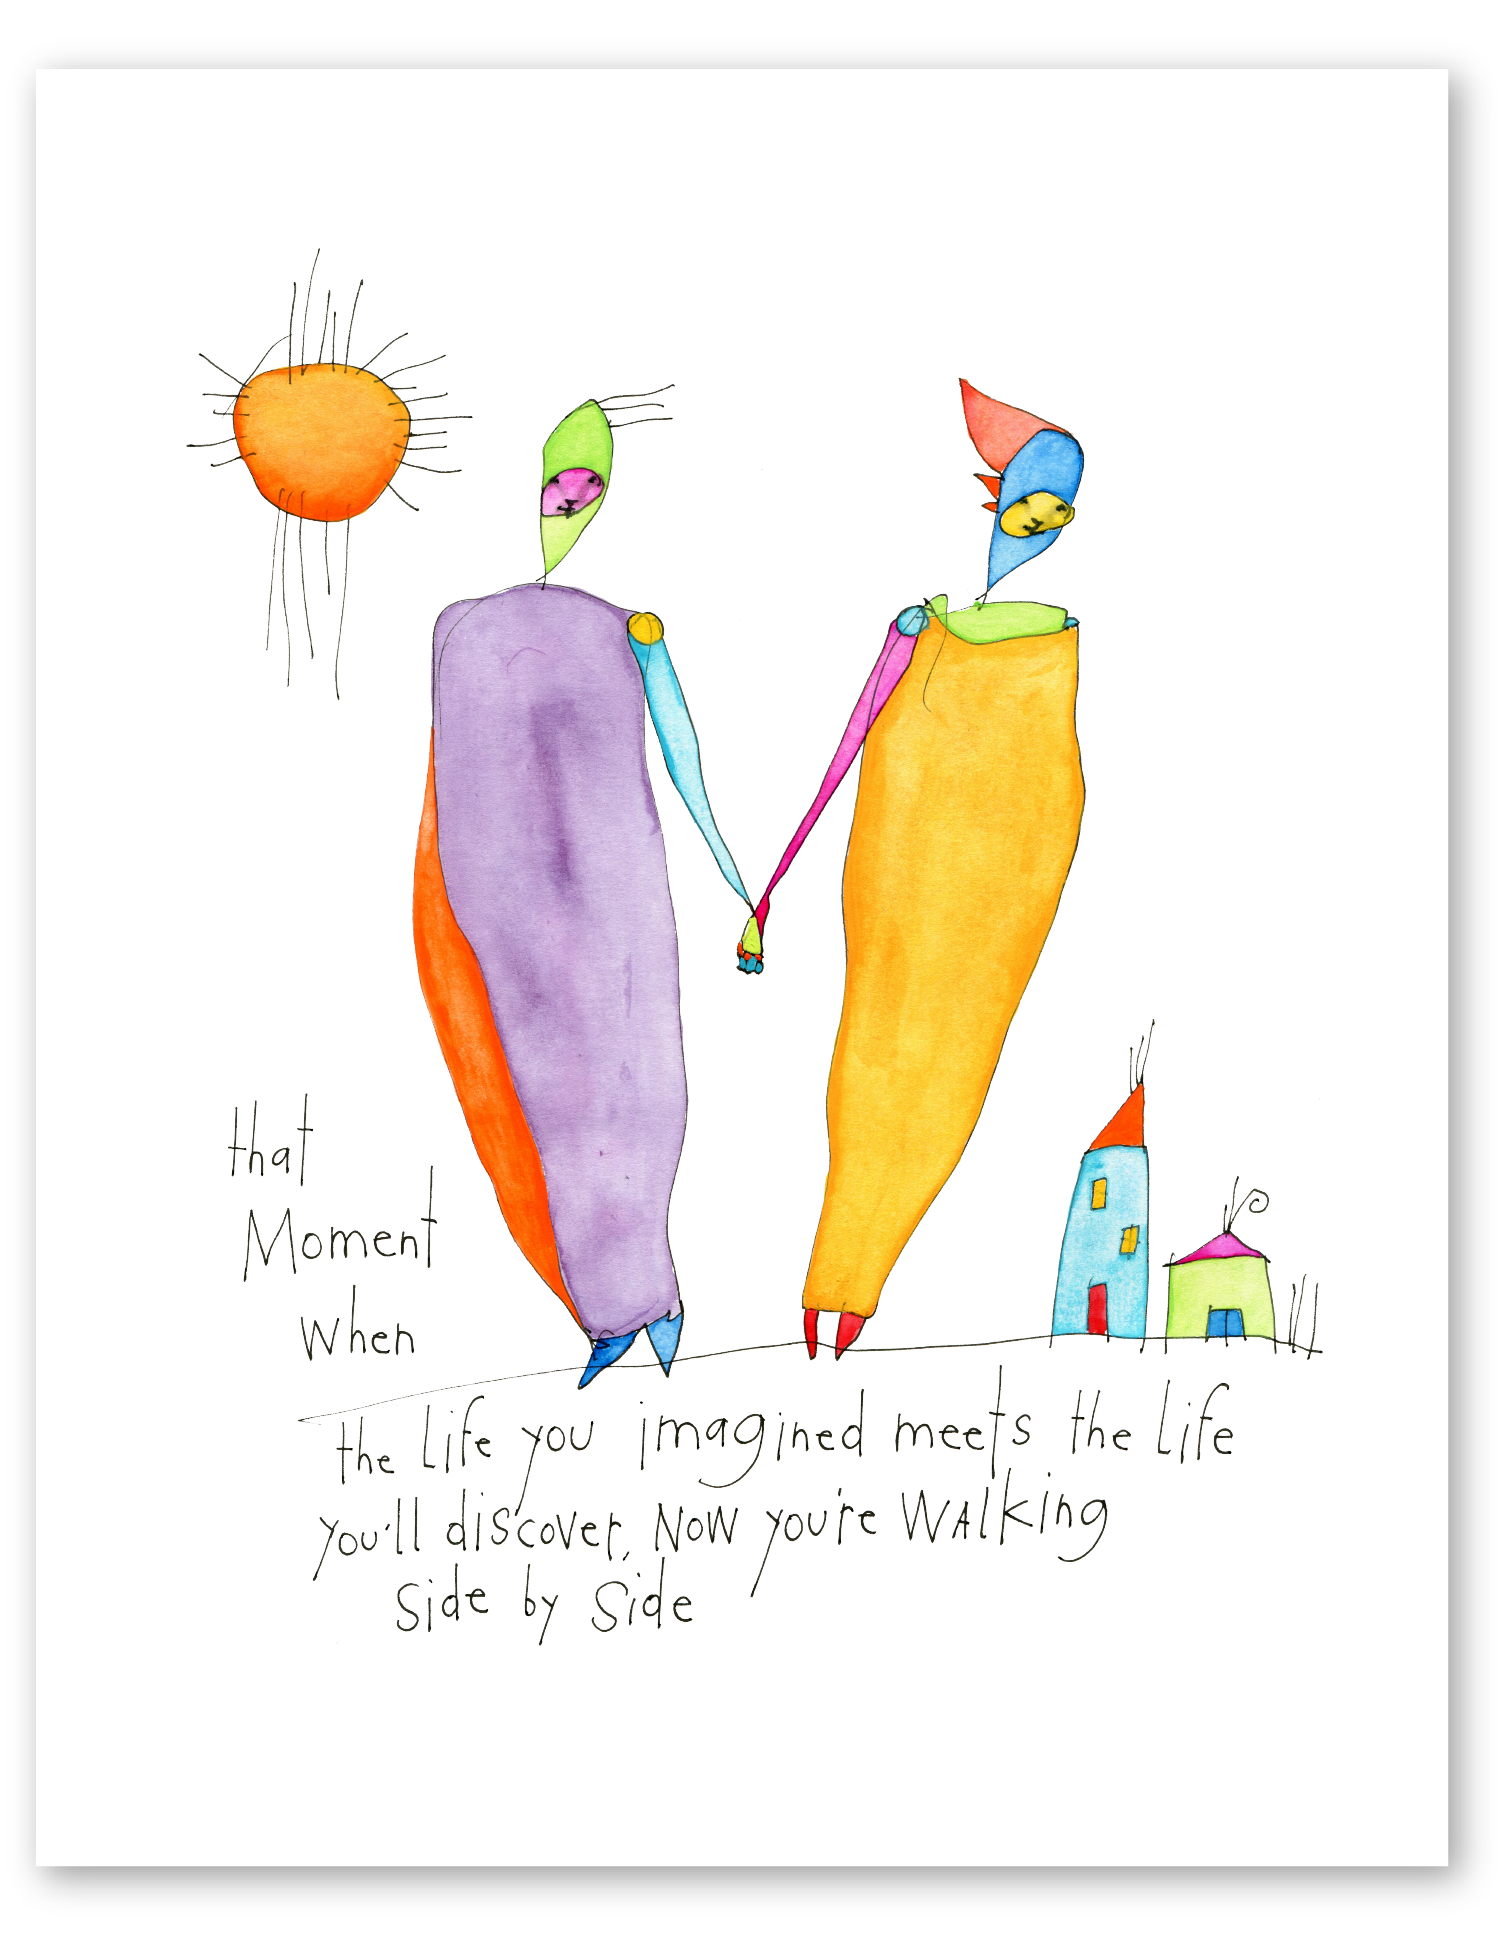 that
Moment
when
the life you imagined meets the life
you'll discover, NOW you're WALking
side by side